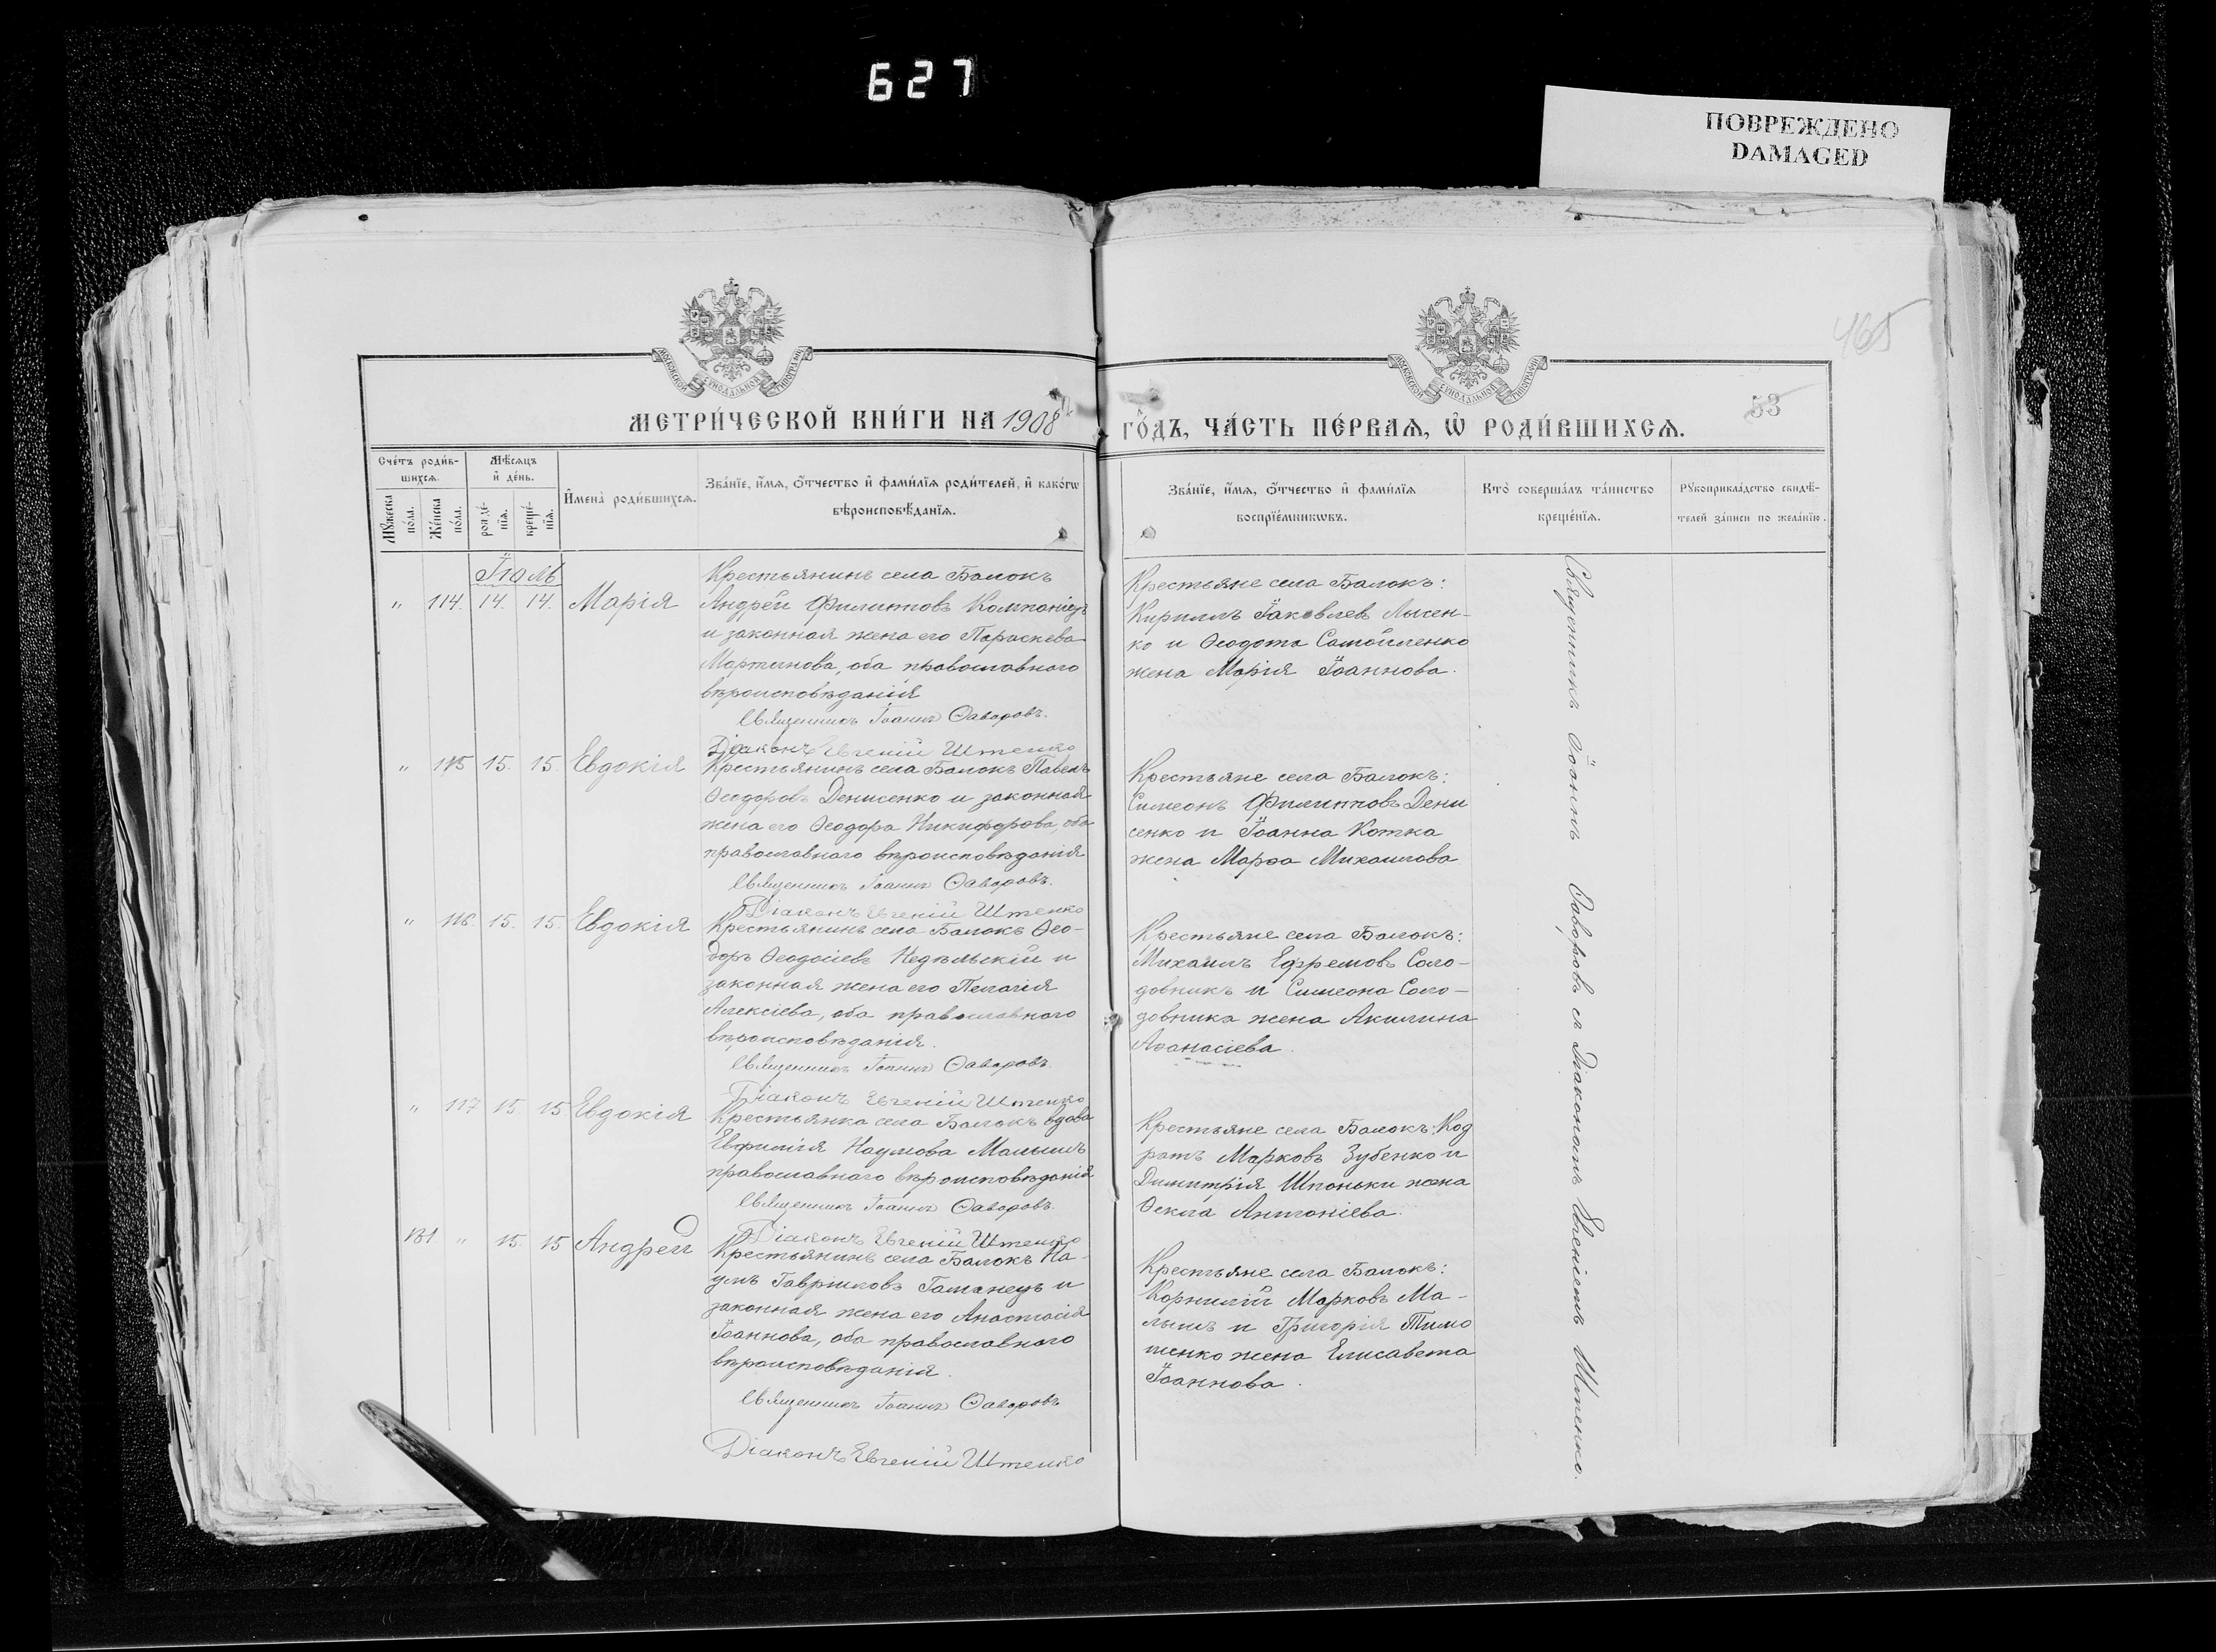 627
ПОВРЕЖДЕНО
DAMAGED
465
53
МОСКОВСКОЙ СѴНОДАЛЬНОЙ ТИПОГРАФІИ
МОСКОВСКОЙ СѴНОДАЛЬНОЙ ТИПОГРАФІИ
МЕТРИ́ЧЕСКОЙ КНИ́ГИ НА 1908
ГО́ДЪ, ЧА́СТЬ ПЕ́РВАѦ, Ѡ҆ РОДИ́ВШИХСѦ.
Сче́тъ роди́в-
шихсѧ.
Мѹ́жеска по́ла.
Же́нска по́ла.
Мѣ́сѧцъ
и҆ де́нь.
рожде́-
нїѧ.
креще́-
нїѧ.
И҆мена̀ роди́вшихсѧ.
Зва́нїе, и҆́мѧ, ѻ҆́тчество и҆ фами́лїѧ роди́телей, и҆ како́гѡ
вѣроисповѣ́данїѧ.
Зва́нїе, и҆́мѧ, ѻ҆́тчество и҆ фами́лїѧ
воспрїе́мникѡвъ.
Кто̀ соверша́лъ та́инство
креще́нїѧ.
Рѹкоприкла́дство свидѣ́-
телей за́писи по жела́нїю.
Іюль
" 114. 14. 14. Марія
Крестьянинъ села Балокъ
Андрей Филипповъ Компаніецъ
и законная жена его Параскева
Мартинова, оба православного
вѣроисповѣданія
Священникъ Іоаннъ Ѳаворовъ.
Діаконъ Евгеній Штепенко
Крестьяне села Балокъ:
Кириллъ Іаковлев Лысен-
ко и Ѳеодота Самойленко
жена Марія Іоаннова.
" 115 15. 15. Евдокія
Крестьянинъ села Балокъ Павелъ
Ѳеодоровъ Денисенко и законная
жена его Ѳеодора Никифорова, оба
православного вѣроисповѣданія
Священникъ Іоаннъ Ѳаворовъ.
Діаконъ Евгеній Штепенко
Крестьяне села Балокъ:
Симеонъ Филипповъ Дени
сенко и Іоанна Котка
жена Марѳа Михаилова
" 116. 15. 15. Евдокія
Крестьянинъ села Балокъ Ѳео-
доръ Ѳеодосіевъ Недѣльскій и
законная жена его Пелагія
Алексіева, оба православного
вѣроисповѣданія.
Священникъ Іоаннъ Ѳаворовъ.
Діаконъ Евгеній Штепенко
Крестьяне села Балокъ:
Михаилъ Ефремовъ Соло-
довникъ и Симеона Соло-
довника жена Акилина
Аѳанасіева.
" 117 15. 15 Евдокія
Крестьянка села Балокъ вдова
Евфимія Наумова Малышъ
православного вѣроисповѣданія
Священникъ Іоаннъ Ѳаворовъ.
Діаконъ Евгеній Штепенко
Крестьяне села Балокъ: Код
ратъ Марковъ Зубенко и
Димитрія Шпоньки жена
Ѳекла Антоніева.
131. " 15. 15 Андрей
Крестьянинъ села Балокъ На-
умъ Гавріиловъ Гаманецъ и
законная жена его Анастасія
Іоаннова, оба православного
вѣроисповѣданія.
Священникъ Іоаннъ Ѳаворовъ
Діаконъ Евгеній Штепенко
Крестьяне села Балокъ:
Корнилій Марковъ Ма-
лышъ и Григорія Тимо
шенко жена Елисавета
Іоаннова.
Священникъ Іоаннъ Ѳаворовъ съ Діакономъ Евгеніемъ Штепенко.